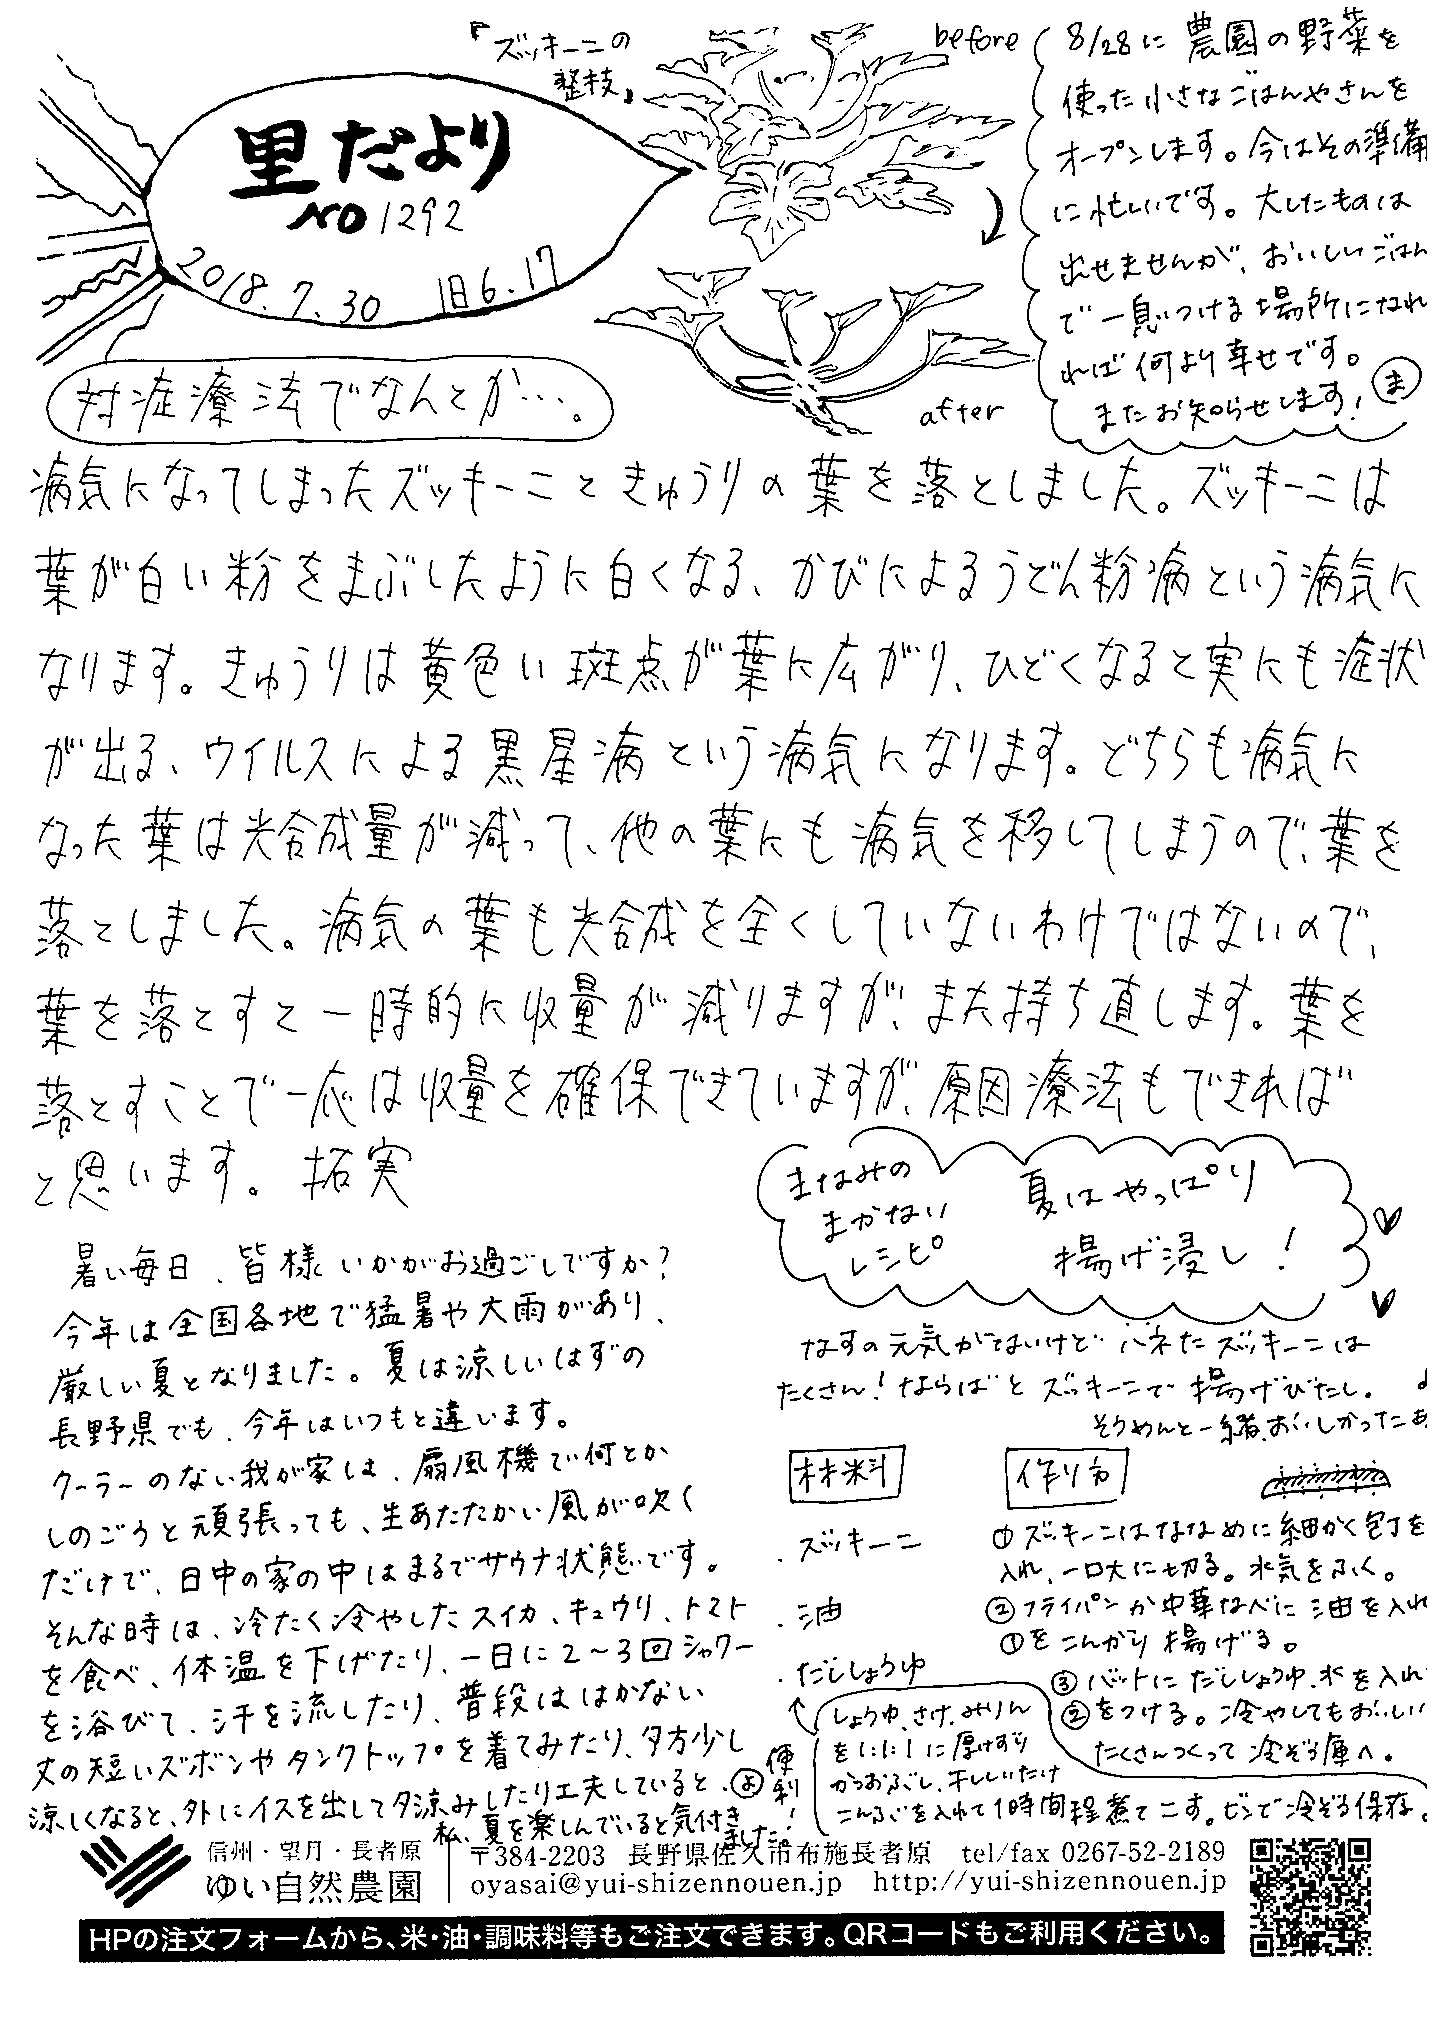 里だより
NO1292
2018.7.30 旧6.17
『ズッキーニの
整枝』
before
after
8/28に農園の野菜を
使った小さなごはんやさんを
オープンします。今はその準備
に忙しいです。大したものは
出せませんが、おいしいごはん
で一息つける場所になれ
れば何より幸せです。
またお知らせします! ま
対症療法でなんとか…。
病気になってしまったズッキーニときゅうりの葉を落としました。ズッキーニは
葉が白い粉をまぶしたように白くなる、かびによるうどん粉病という病気に
なります。きゅうりは黄色い斑点が葉に広がり、ひどくなると実にも症状
が出る、ウイルスによる黒星病という病気になります。どちらも病気に
なった葉は光合成量が減って、他の葉にも病気を移してしまうので、葉を
落としました。病気の葉も光合成を全くしていないわけではないので、
葉を落とすと一時的に収量が減りますが、また持ち直します。葉を
落とすことで一応は収量を確保できていますが、原因療法もできれば
と思います。 拓実
暑い毎日、皆様いかがお過ごしですか?
今年は全国各地で猛暑や大雨があり、
厳しい夏となりました。夏は涼しいはずの
長野県でも、今年はいつもと違います。
クーラーのない我が家は、扇風機で何とか
しのごうと頑張っても、生あたたかい風が吹く
だけで、日中の家の中はまるでサウナ状態です。
そんな時は、冷たく冷やしたスイカ、キュウリ、トマト
を食べ、体温を下げたり、一日に2〜3回シャワー
を浴びて、汗を流したり、普段ははかない
丈の短いズボンやタンクトップを着てみたり、夕方少し
涼しくなると、外にイスを出して夕涼みしたり工夫していると、
私、夏を楽しんでいると気付きました。 よ
まなみの
まかない
レシピ
夏はやっぱり
揚げ浸し!
なすの元気がでないけど ハネたズッキーニは
たくさん!ならばとズッキーニで揚げびたし。
そうめんと一緒、おいしかったあ
材料
・ズッキーニ
・油
・だしじょうゆ
作り方
①ズッキーニはななめに細かく包丁を
入れ、一口大に切る。水気をふく。
②フライパンか中華なべに油を入れ
①をこんがり揚げる。
③バットにだしじょうゆ、水を入れ
②をつける。冷やしてもおいしい
たくさんつくって冷ぞう庫へ。
便利!
しょうゆ、さけ、みりん
を1:1:1に厚けずり
かつおぶし、干ししいたけ
こんぶを入れて1時間程煮てこす。ビンで冷ぞう保存。
信州・望月・長者原
ゆい自然農園
〒384-2203 長野県佐久市布施長者原 tel/fax 0267-52-2189
oyasai@yui-shizennouen.jp http://yui-shizennouen.jp
HPの注文フォームから、米・油・調味料等もご注文できます。QRコードもご利用ください。